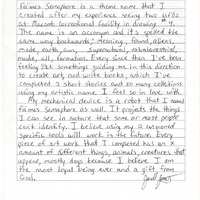 Faimus Semaphore is a theme name that I
created after my experience seeing two ufo's
at Muscott correctional facility in drawing # 4.
The name is an acronym and it's spelled the
same way backwards. Meaning, found, aliens,
made, earth, sun, Supernatural, extraterrestrial,
made, all, formation. Every since then I've been
feeling like something guiding me in this direction
to create art, and write books, which I've
completed 3 short stories and so many collections
using my artistic name I feel so in love with.
My mechanical device is a robot that I named
faimus semaphore as well. It projects the things
I can see in nature that some or most people
can't identify. I believe using my
specific tools will work in the future. Every
piece of art work that I completed has an X
amount of different things, animals, creatures that
appear, mostly dogs because I believe I am
the most loyal being ever and a gift from
God.